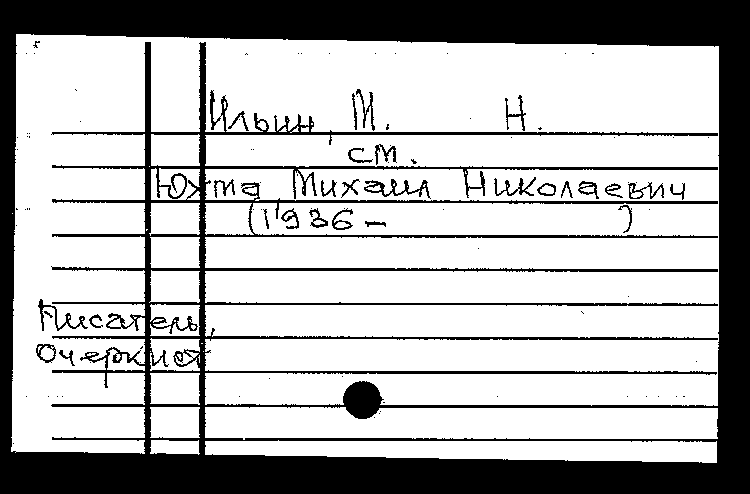 Ильин, М. Н.
см.
Юхта, Михаил Николаевич
(1936 – )
Писатель,
Очеркист